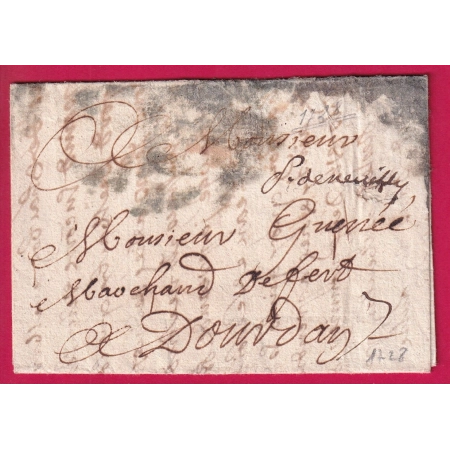 1728
A Monsieur
P. deneuilly
Monsieur Guenée
Marchand Defert
A Dourdan
1728